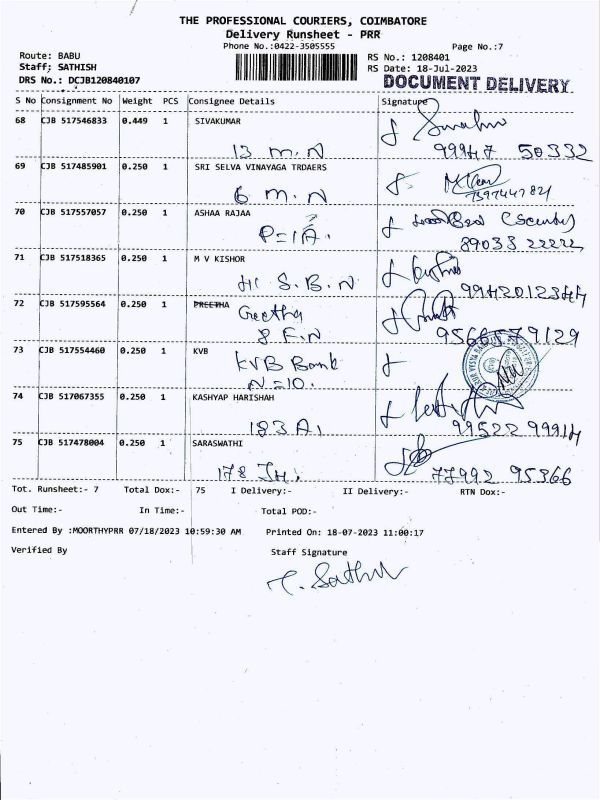 THE PROFESSIONAL COURIERS, COIMBATORE
Delivery Runsheet - PRR
Phone No.:0422-3505555 Page No.:7
Route: BABU RS No.: 1208401
Staff: SATHISH RS Date: 18-Jul-2023
DRS No.: DCJB120840107 DOCUMENT DELIVERY
S No Consignment No Weight PCS Consignee Details Signature
68 CJB 517546833 0.449 1 SIVAKUMAR
13 M.N 99947 50332
69 CJB 517485901 0.250 1 SRI SELVA VINAYAGA TRDAERS
6 M.N
70 CJB 517557057 0.250 1 ASHAA RAJAA (Security)
P=1A. 89033 22222
71 CJB 517518365 0.250 1 M V KISHOR
41 S.B.N 9942012344
72 CJB 517595564 0.250 1 PREETHA
Geetha
8 F.N 9566579129
73 CJB 517554460 0.250 1 KVB
KVB Bank
N=10.
74 CJB 517067355 0.250 1 KASHYAP HARISHAH
183 A1 99522 99914
75 CJB 517478004 0.250 1 SARASWATHI
178 JH. 77992 95366
Tot. Runsheet:- 7 Total Dox:- 75 I Delivery:- II Delivery:- RTN Dox:-
Out Time:- In Time:- Total POD:-
Entered By :MOORTHYPRR 07/18/2023 10:59:30 AM Printed On: 18-07-2023 11:00:17
Verified By Staff Signature